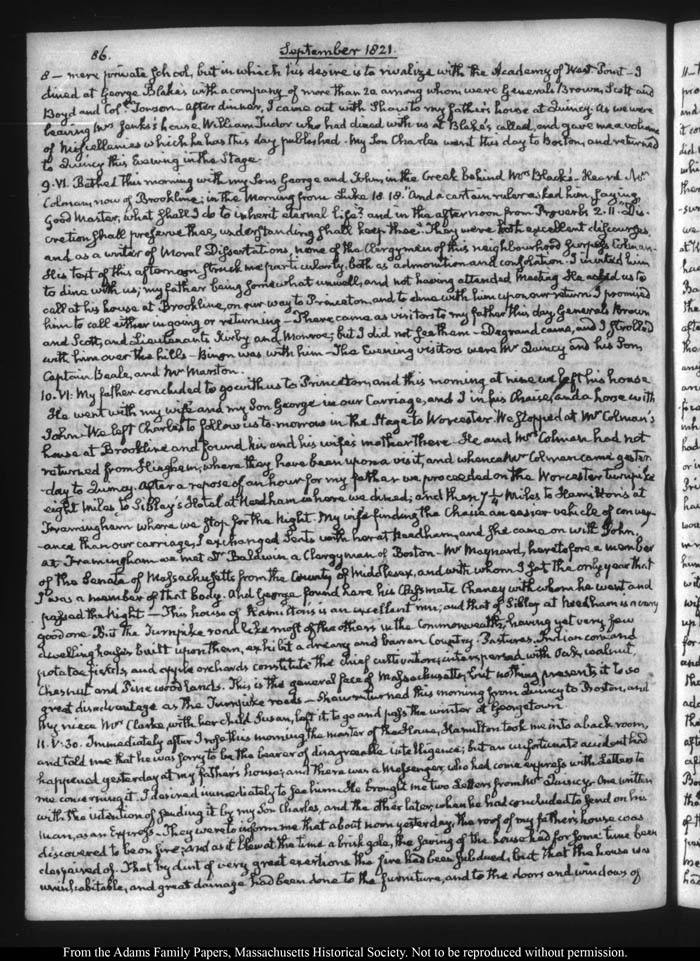 86. September 1821.
8 — mere private School, but in which his desire is to rivalize with the Academy of West Point — I
dined at George Blake's with a company of more than 20 among whom were Generals Brown, Scott and
Boyd and Col. Jonson. After dinner, I came out with Shaw to my father's house at Quincy. As we were
leaving Mrs Jenks's house William Tudor who had dined with us at Blake's called, and gave me a volume
of Miscellanies which he has this day published. My Son Charles went this day to Boston, and returned
to Quincy this Evening in the Stage.
9. VI. Bathed this morning with my Sons George and John, in the Creek behind Mrs Black's — Heard Mr
Colman, now of Brookline; in the Morning from Luke 18. 18. "And a certain ruler asked him, saying,
Good Master, what shall I do to inherit eternal life? and in the afternoon from Proverbs 2. 11. "Dis-
cretion shall preserve thee, understanding shall keep thee." They were both excellent discourses,
and as a writer of Moral Dissertations, none of the Clergymen of this neighbourhood surpass Colman.
His text of this afternoon struck me particularly, both as admonition and consolation. I invited him
to dine with us; my father being somewhat unwell, and not having attended Meeting. He asked us to
call at his house at Brookline, on our way to Princeton, and to dine with him upon our return. I promised
him to call either in going or returning — There came as visitors to my father this day Generals Brown
and Scott, and Lieutenants Kirby and Monroe; but I did not see them — Degrand came, and I strolled
with him over the hills — was with him — The Evening visitors were Mr Quincy and his Son,
Captain Beale, and Mr Marston.
10. VI. My father concluded to go with us to Princeton, and this morning at nine we left his house
He went with my wife and my Son George in our Carriage, and I in his Chaise, and a horse with
John. We left Charles to follow us to-morrow in the Stage to Worcester. We stopped at Mr Colman's
house at Brookline and found his and his wife's mother there. He and Mrs Colman had not
returned from Hingham, where they have been upon a visit, and whence Mr Colman came yester-
day to Quincy. After a repose of an hour for my father we proceeded on the Worcester turnpike
eight Miles to Sibley's Hotel at Needham where we dined; and then 7 1/4 Miles to Hamilton's at
Framingham where we stop for the Night. My wife finding the Chaise an easier vehicle of convey-
ance than our carriage, I exchanged Seats with her at Needham, and she came on with John.
at Framingham we met Dr Baldwin, a Clergyman of Boston — Mr Maynard, heretofore a member
of the Senate of Massachusetts from the County of Middlesex, and with whom I sat the only year that
I was a member of that body. And George found here his Classmate Cheney with whom he went and
passed the Night. — This house of Hamilton's is an excellent inn; and that of Sibley at Needham is a very
good one. But the Turnpike road like most of the others in the Commonwealth, having yet very few
dwelling houses built upon them, exhibit a dreary and barren Country. Pastures, Indian corn and
potatoe fields, and apple orchards constitute the chief cultivation; interspersed with Oak, walnut,
Chesnut and Pine wood lands. This is the general face of Massachusetts, but nothing presents it to so
great disadvantage as the Turnpike roads — Shaw returned this morning from Quincy to Boston, and
My niece Mrs Clarke, with her child Susan, left it to go and pass the winter at Georgetown.
11. V. 30. Immediately after I rose this morning the master of the House, Hamilton took me into a back room,
and told me that he was sorry to be the bearer of disagreeable intelligence; but an unfortunate accident had
happened yesterday at my father's house; and there was a Messenger, who had come express with Letters to
me concerning it. I desired immediately to see him. He brought me two Letters from Mr Quincy. One written
with the intention of sending it by my Son Charles, and the other later, when he had concluded to send on his
man, as an Express — They were to inform me that about noon yesterday, the roof of my father's house was
discovered to be on fire; and as it blew at the time a brisk gale, the saving of the house had for some time been
despaired of. That by dint of very great exertions the fire had been subdued, but that the house was
uninhabitable, and great damage had been done to the furniture, and to the doors and windows of
From the Adams Family Papers, Massachusetts Historical Society. Not to be reproduced without permission.